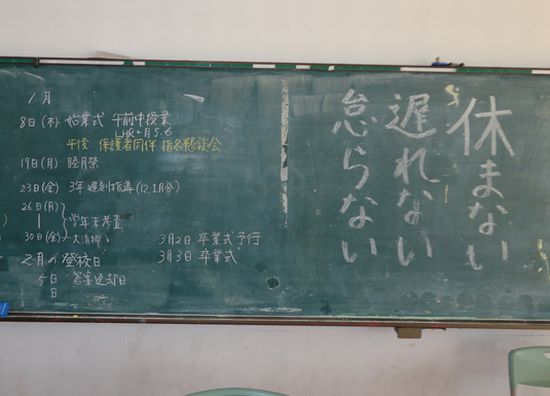 1月
8日(木) 始業式 午前中授業
LHR+月5.6
午後 保護者同伴 指名懇談会
19日(月) 睦月祭
23日(金) 3年遅刻指導(12,1月分)
26日(月)
学年末考査
30日(金) 大清掃
2月の登校日
5日 答案返却日
日
3月2日 卒業式予行
3月3日 卒業式
休まない
遅れない
怠らない